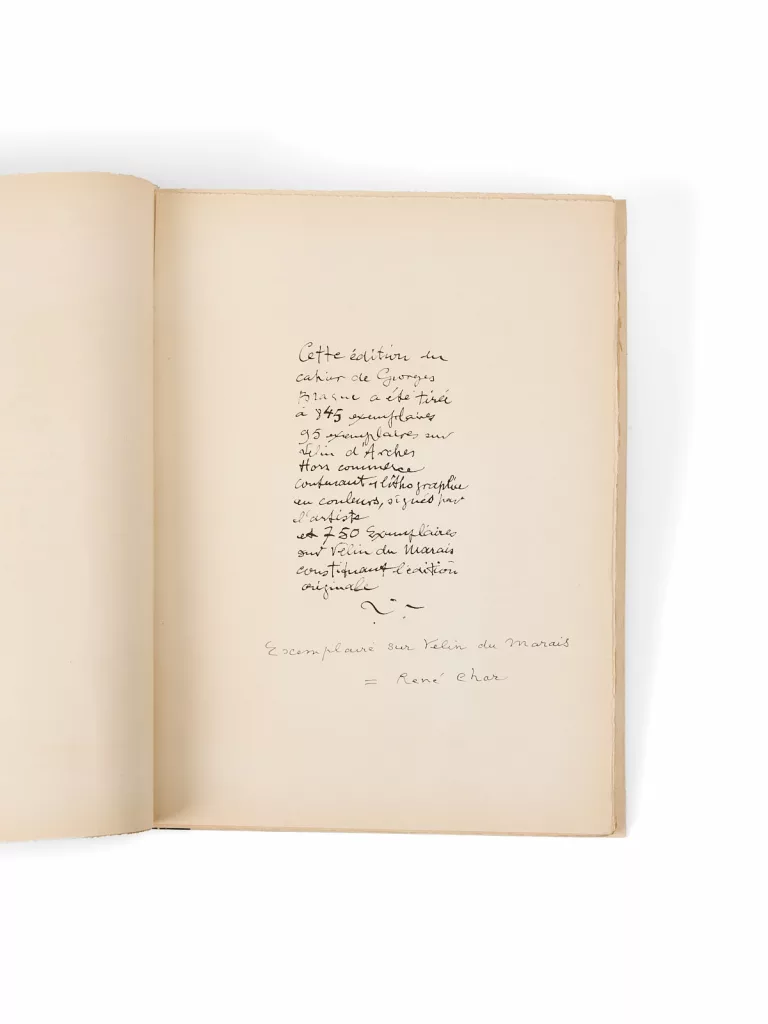 Cette édition du
cahier de Georges
Braque a été tirée
à 845 exemplaires
95 exemplaires sur
Vélin d'Arches
Hors commerce
contenant 1 lithographie
en couleurs, signés par
l'artiste
et 750 Exemplaires
sur Vélin du Marais
constituant l'édition
originale
Exemplaire sur Vélin du Marais
= René Char